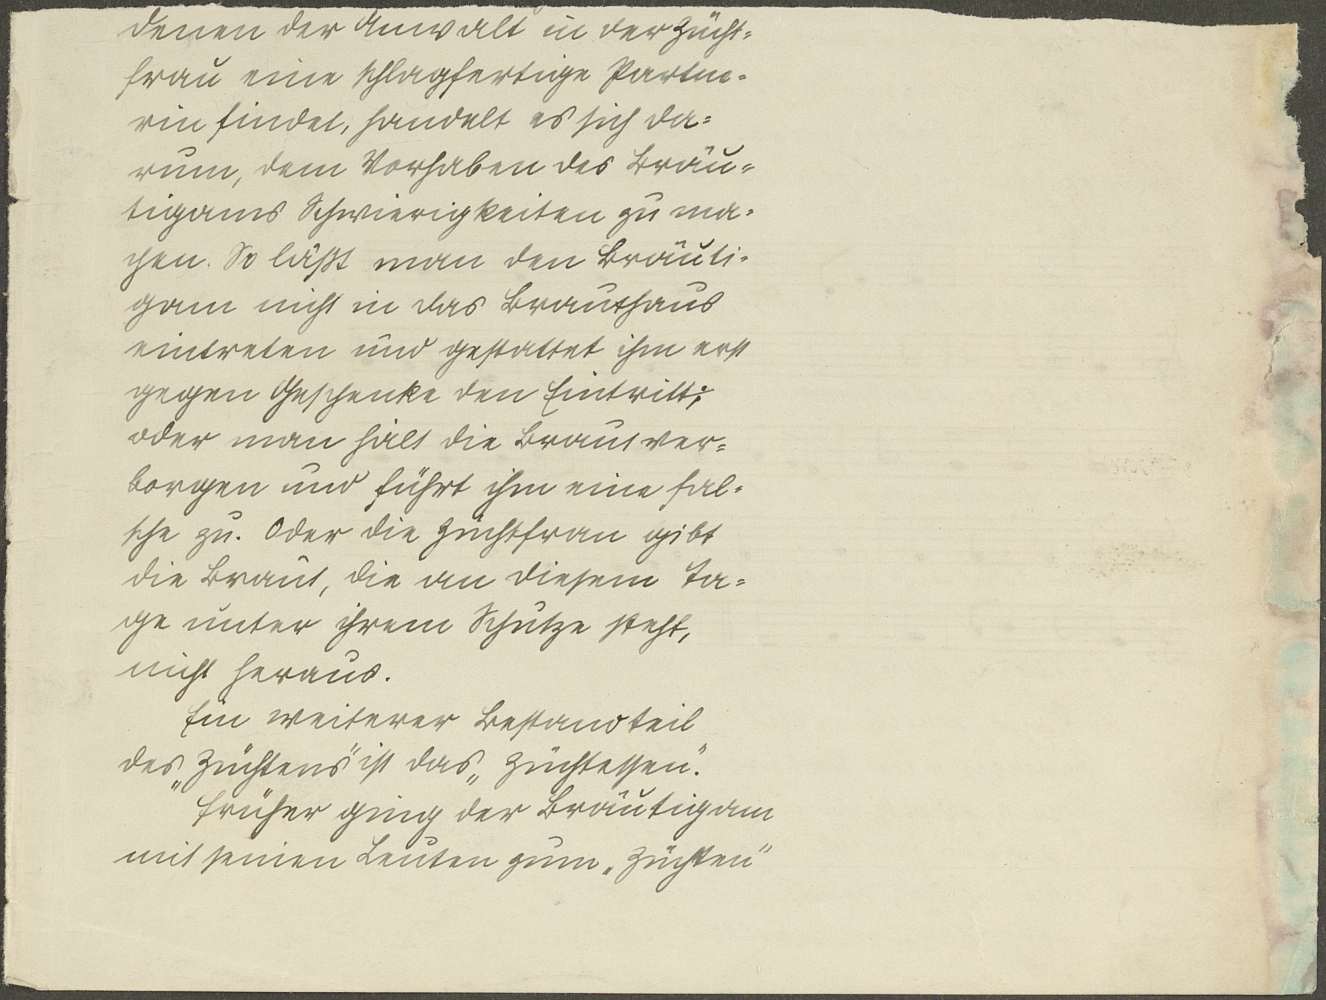 denen der Anwalt in der Zücht-
frau eine schlagfertige Partne-
rin findet, handelt es sich da-
rum, dem Vorhaben des Bräu-
tigams Schwierigkeiten zu ma-
chen. So läßt man den Bräuti-
gam nicht in das Brauthaus
eintreten und gestattet ihm erst
gegen Geschenke den Eintritt;
oder man hält die Braut ver-
borgen und führt ihm eine fal-
sche zu. Oder die Züchtfrau gibt
die Braut, die an diesem Ta-
ge unter ihrem Schutze steht,
nicht heraus.
Ein weiterer Bestandteil
des „Züchtens" ist das „Züchtessen".
Früher ging der Bräutigam
mit seinen Leuten zum „Züchten"